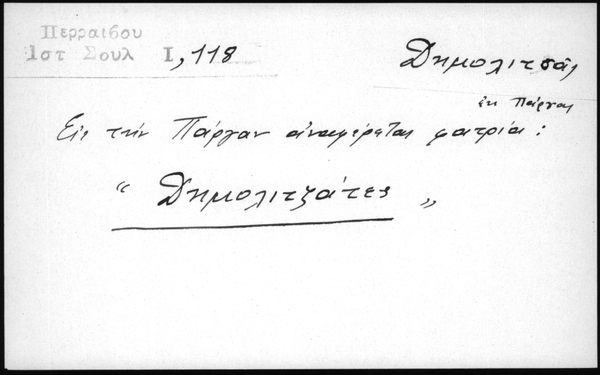 Περραιβου
Ιστ Σουλ Ι, 118
Δημολιτσᾶς
ἐκ Πάργας
Εἰς τὴν Πάργαν ἀναφέρεται φατρία :
“ Δημολιτζάτες „